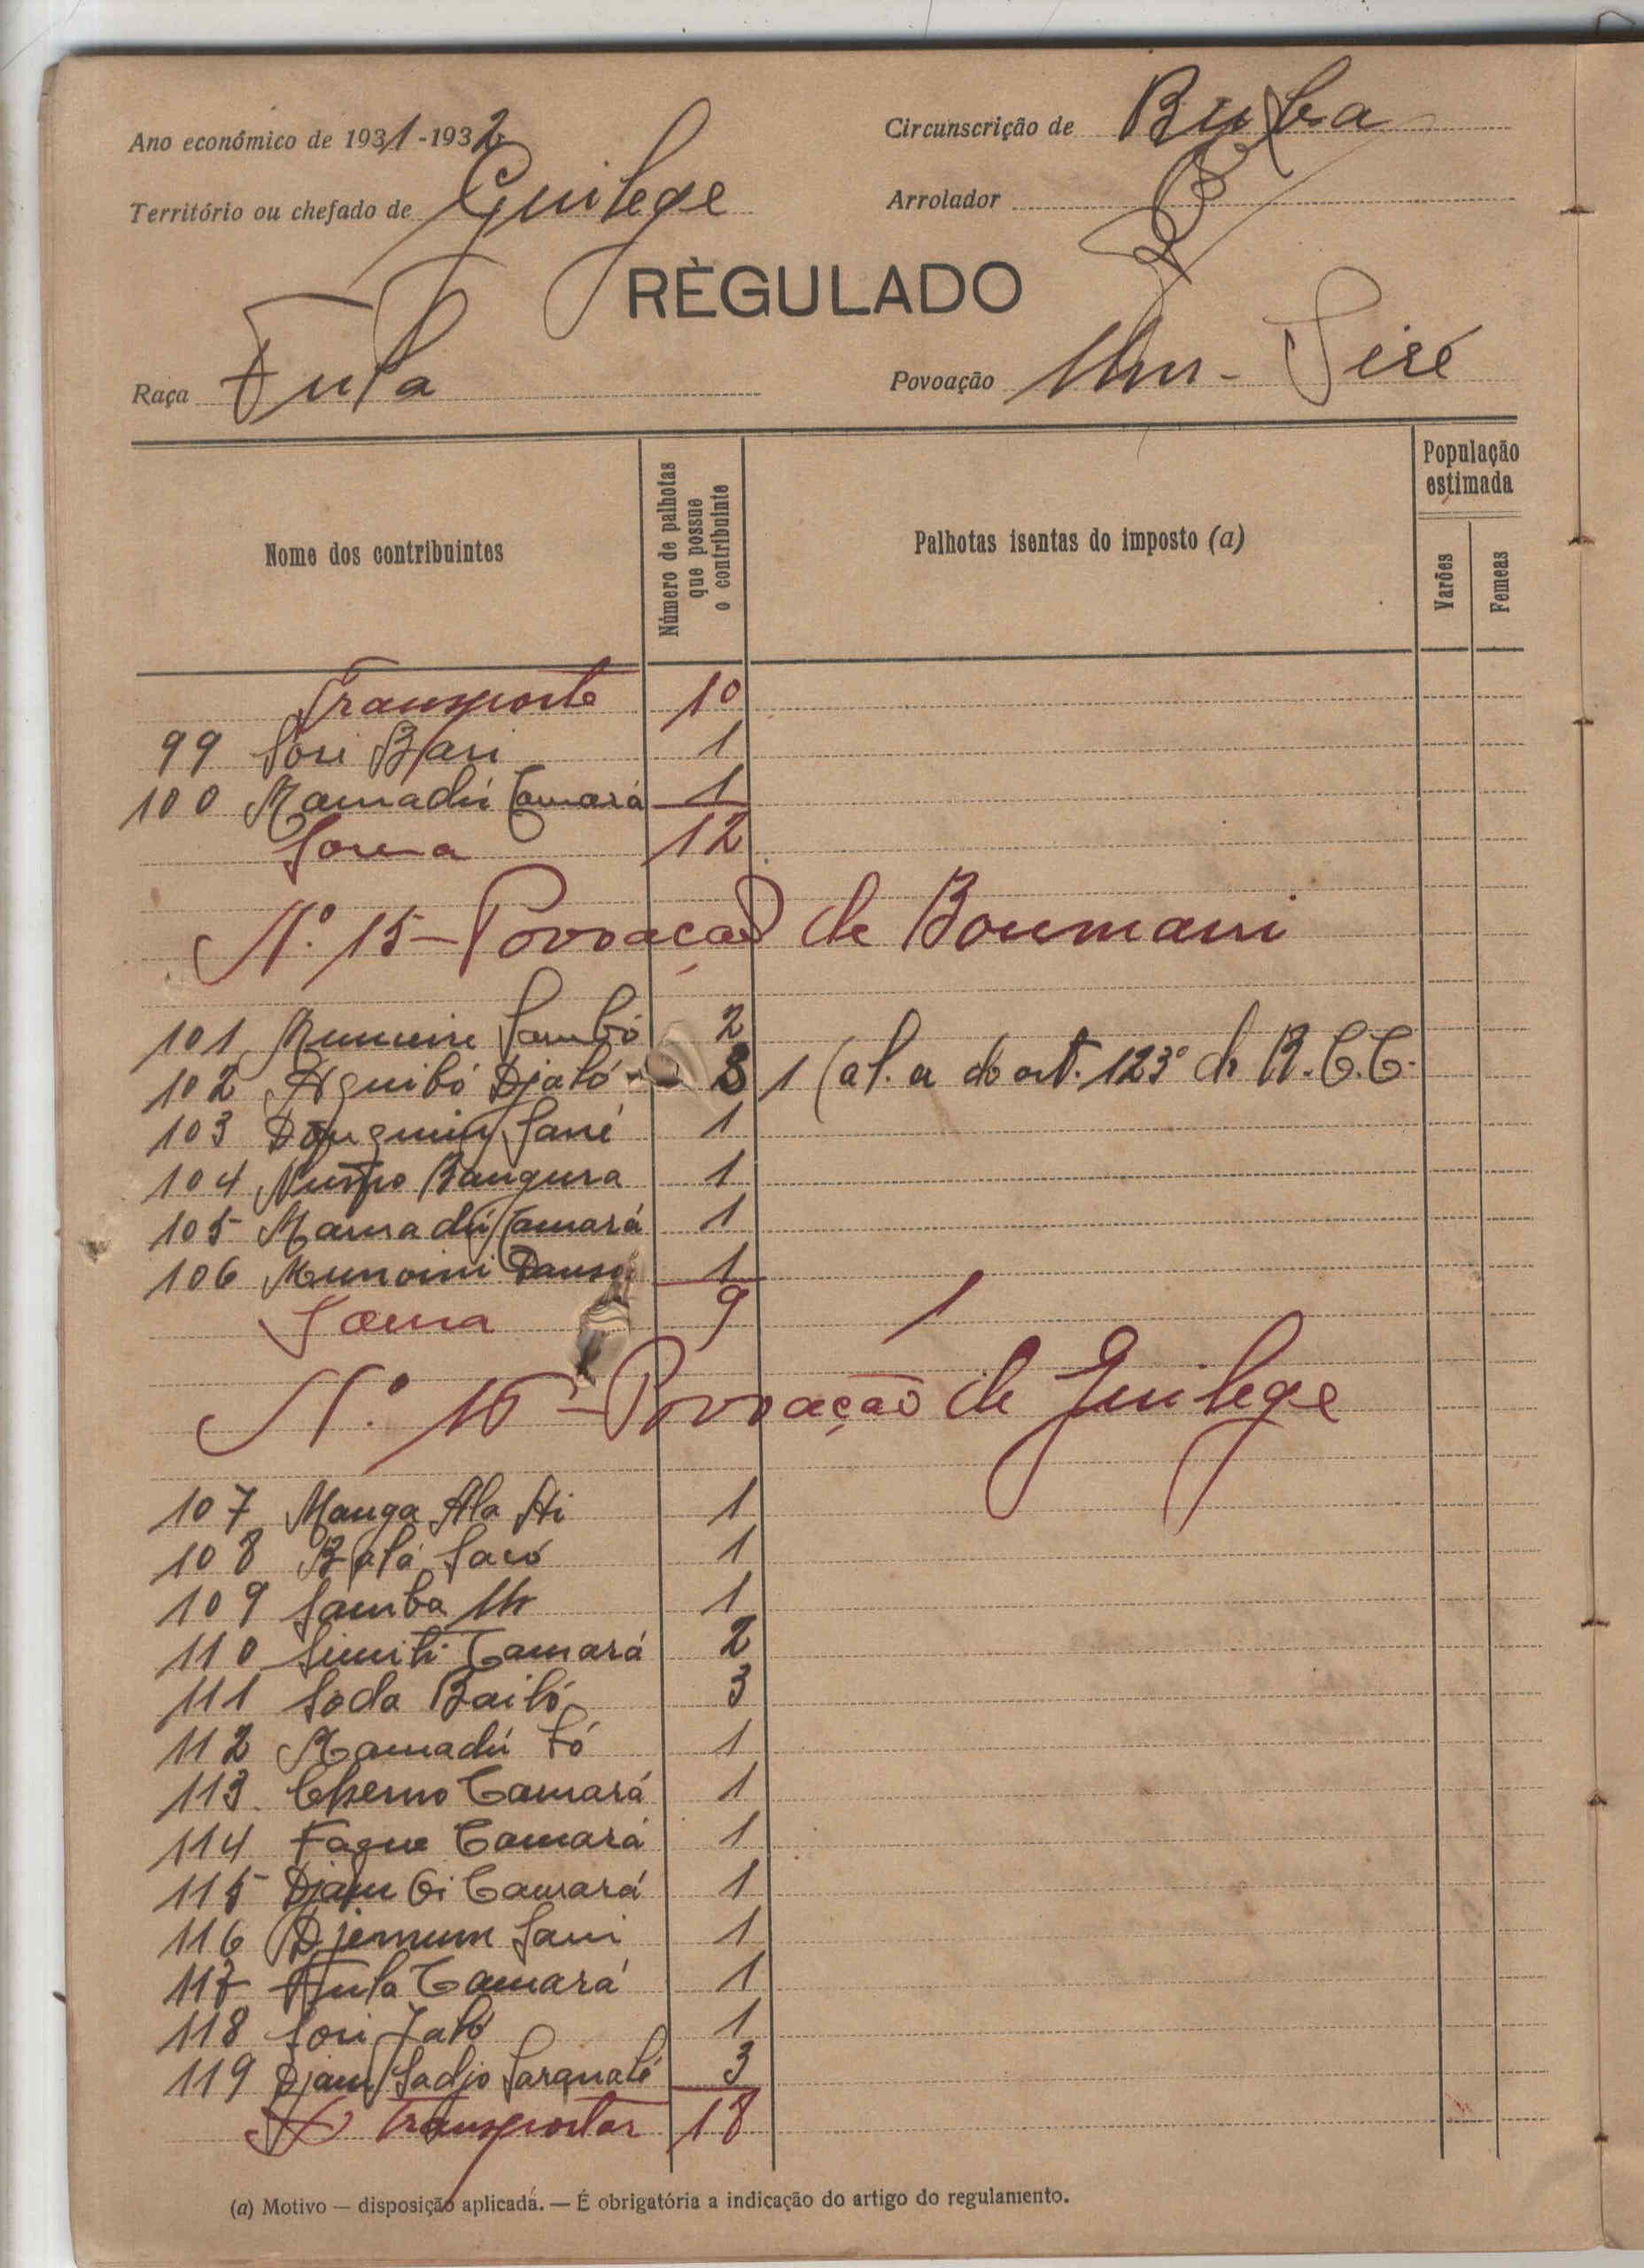 Ano económico de 1931-1932
Circunscrição de Buba
Território ou chefado de Guilege
Arrolador
RÈGULADO
Raça Fula
Povoação Siré
Nome dos contribuintes
Número de palhotas que possue o contribuinte
Palhotas isentas do imposto (a)
População estimada
Varões
Femeas
Transporte 10
99 Sori Bari 1
100 Mamadú Camará 1
Soma 12
N.º 15 - Povoação de Boumani
101 Sambó 2
102 Aguibó Djaló 3 1 (al. a do art. 123º do R.C.C.
103 Sané 1
104 Bangura 1
105 Mamadú Camará 1
106 1
Soma 9 1
N.º 16 - Povoação de Guilege
107 Manga Ala Ai 1
108 Balá Sacó 1
109 Samba 1
110 Simiti Camará 2
111 Soda Bailó 3
112 Mamadú Só 1
113 Cherno Camará 1
114 Fague Camará 1
115 Camará 1
116 Djemum Sani 1
117 Camará 1
118 Sori Jaló 1
119 Djam Sadjo Saranaté 3
A transportar 18
(a) Motivo — disposição aplicada. — É obrigatória a indicação do artigo do regulamento.